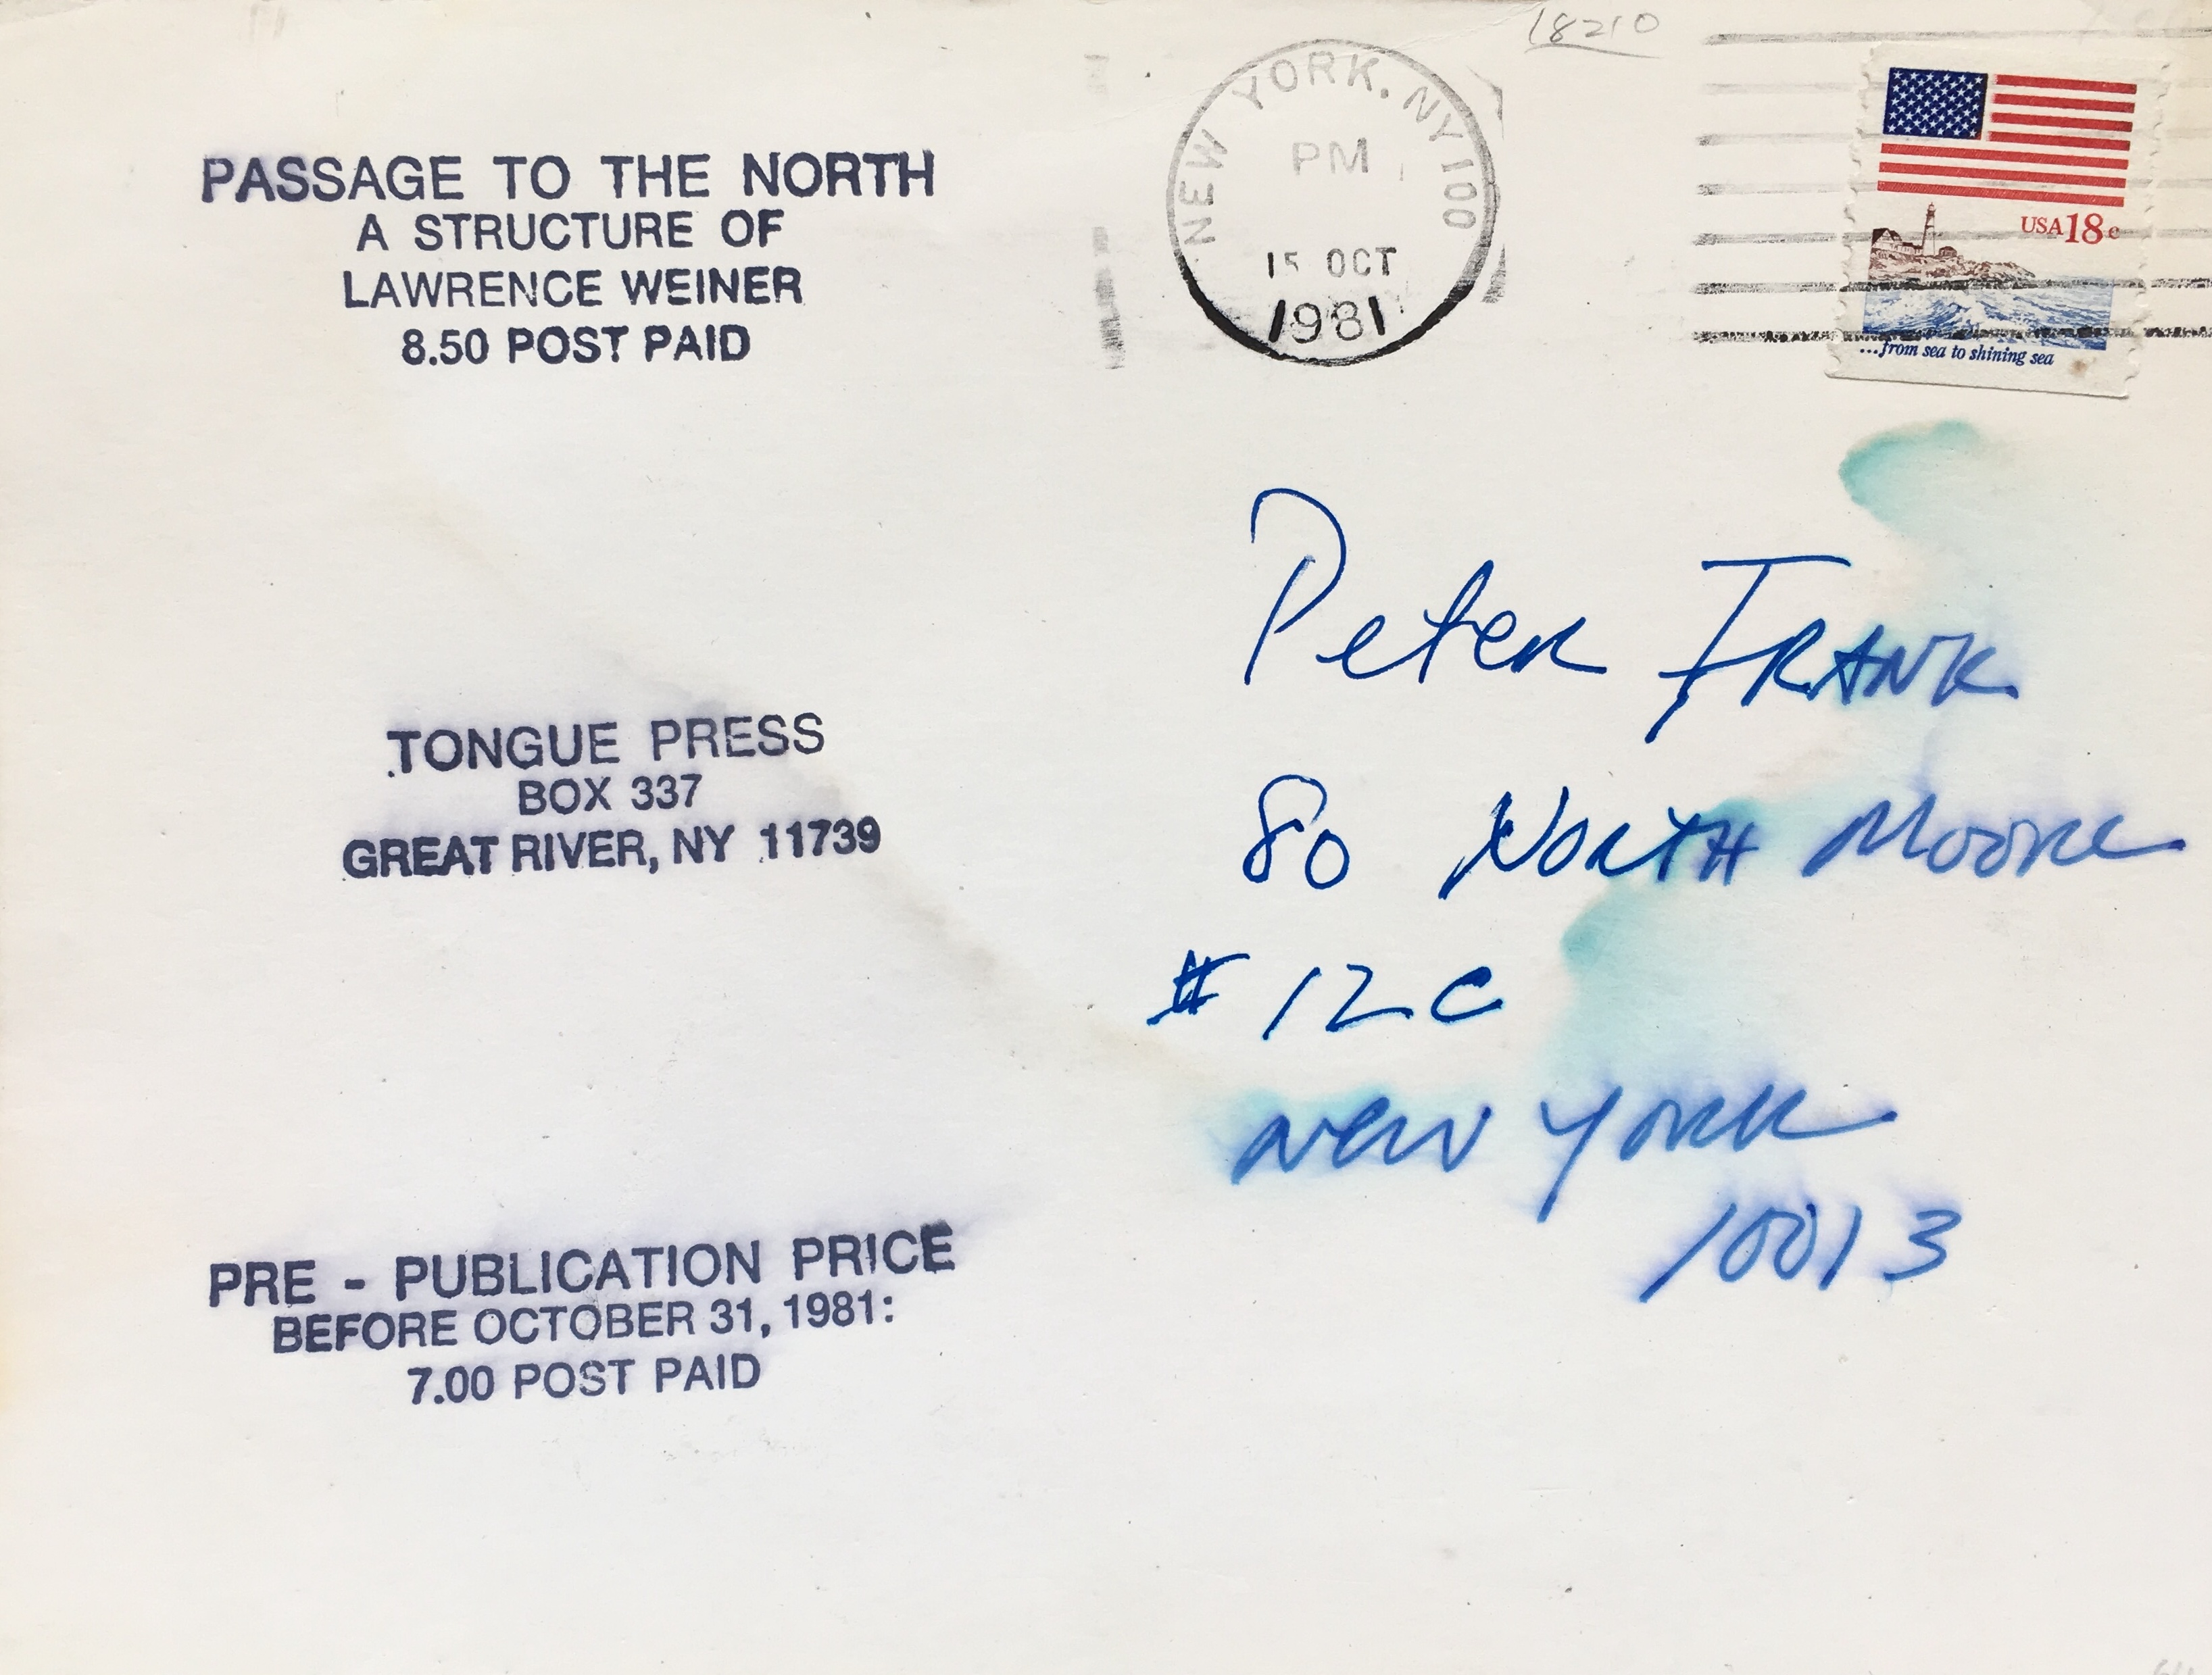 PASSAGE TO THE NORTH
A STRUCTURE OF
LAWRENCE WEINER
8.50 POST PAID
TONGUE PRESS
BOX 337
GREAT RIVER, NY 11739
PRE - PUBLICATION PRICE
BEFORE OCTOBER 31, 1981:
7.00 POST PAID
18210
NEW YORK, NY 100
PM
15 OCT
1981
USA 18c
...from sea to shining sea
Peter FRANK
80 NORTH MOORE
# 12C
NEW YORK
10013